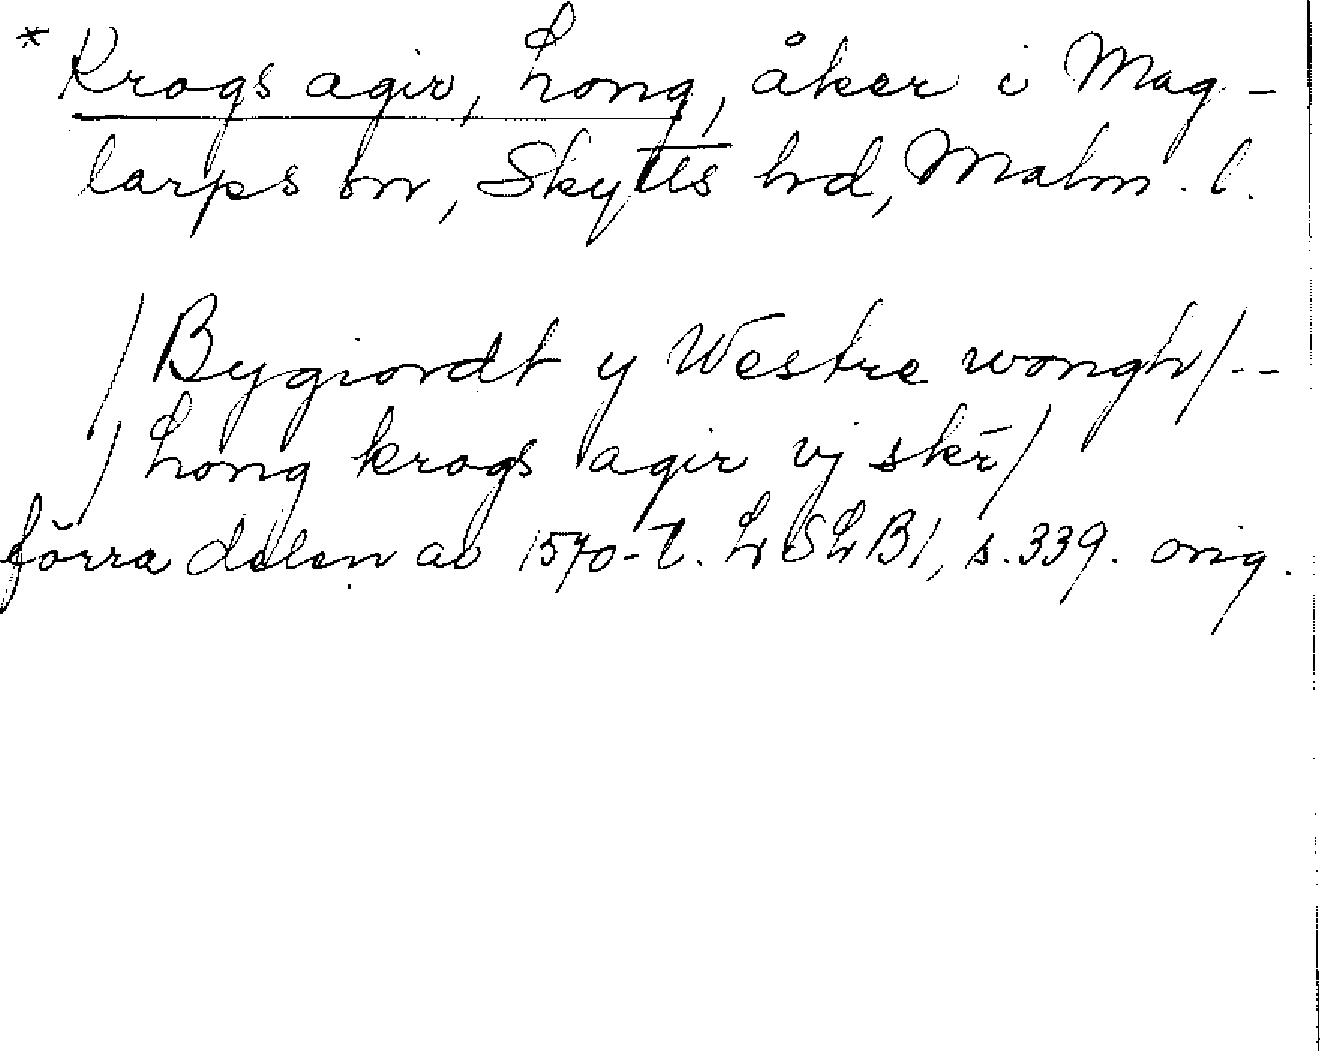 * Krogs agir, Long, åker i Mag-
larps sn, Skytts hd, Malm. l.
/Bygiordt y Westre wongh/--
/Long krogs agir vj skr̄/
förra delen av 1570-t. LSLB1, s. 339. orig.